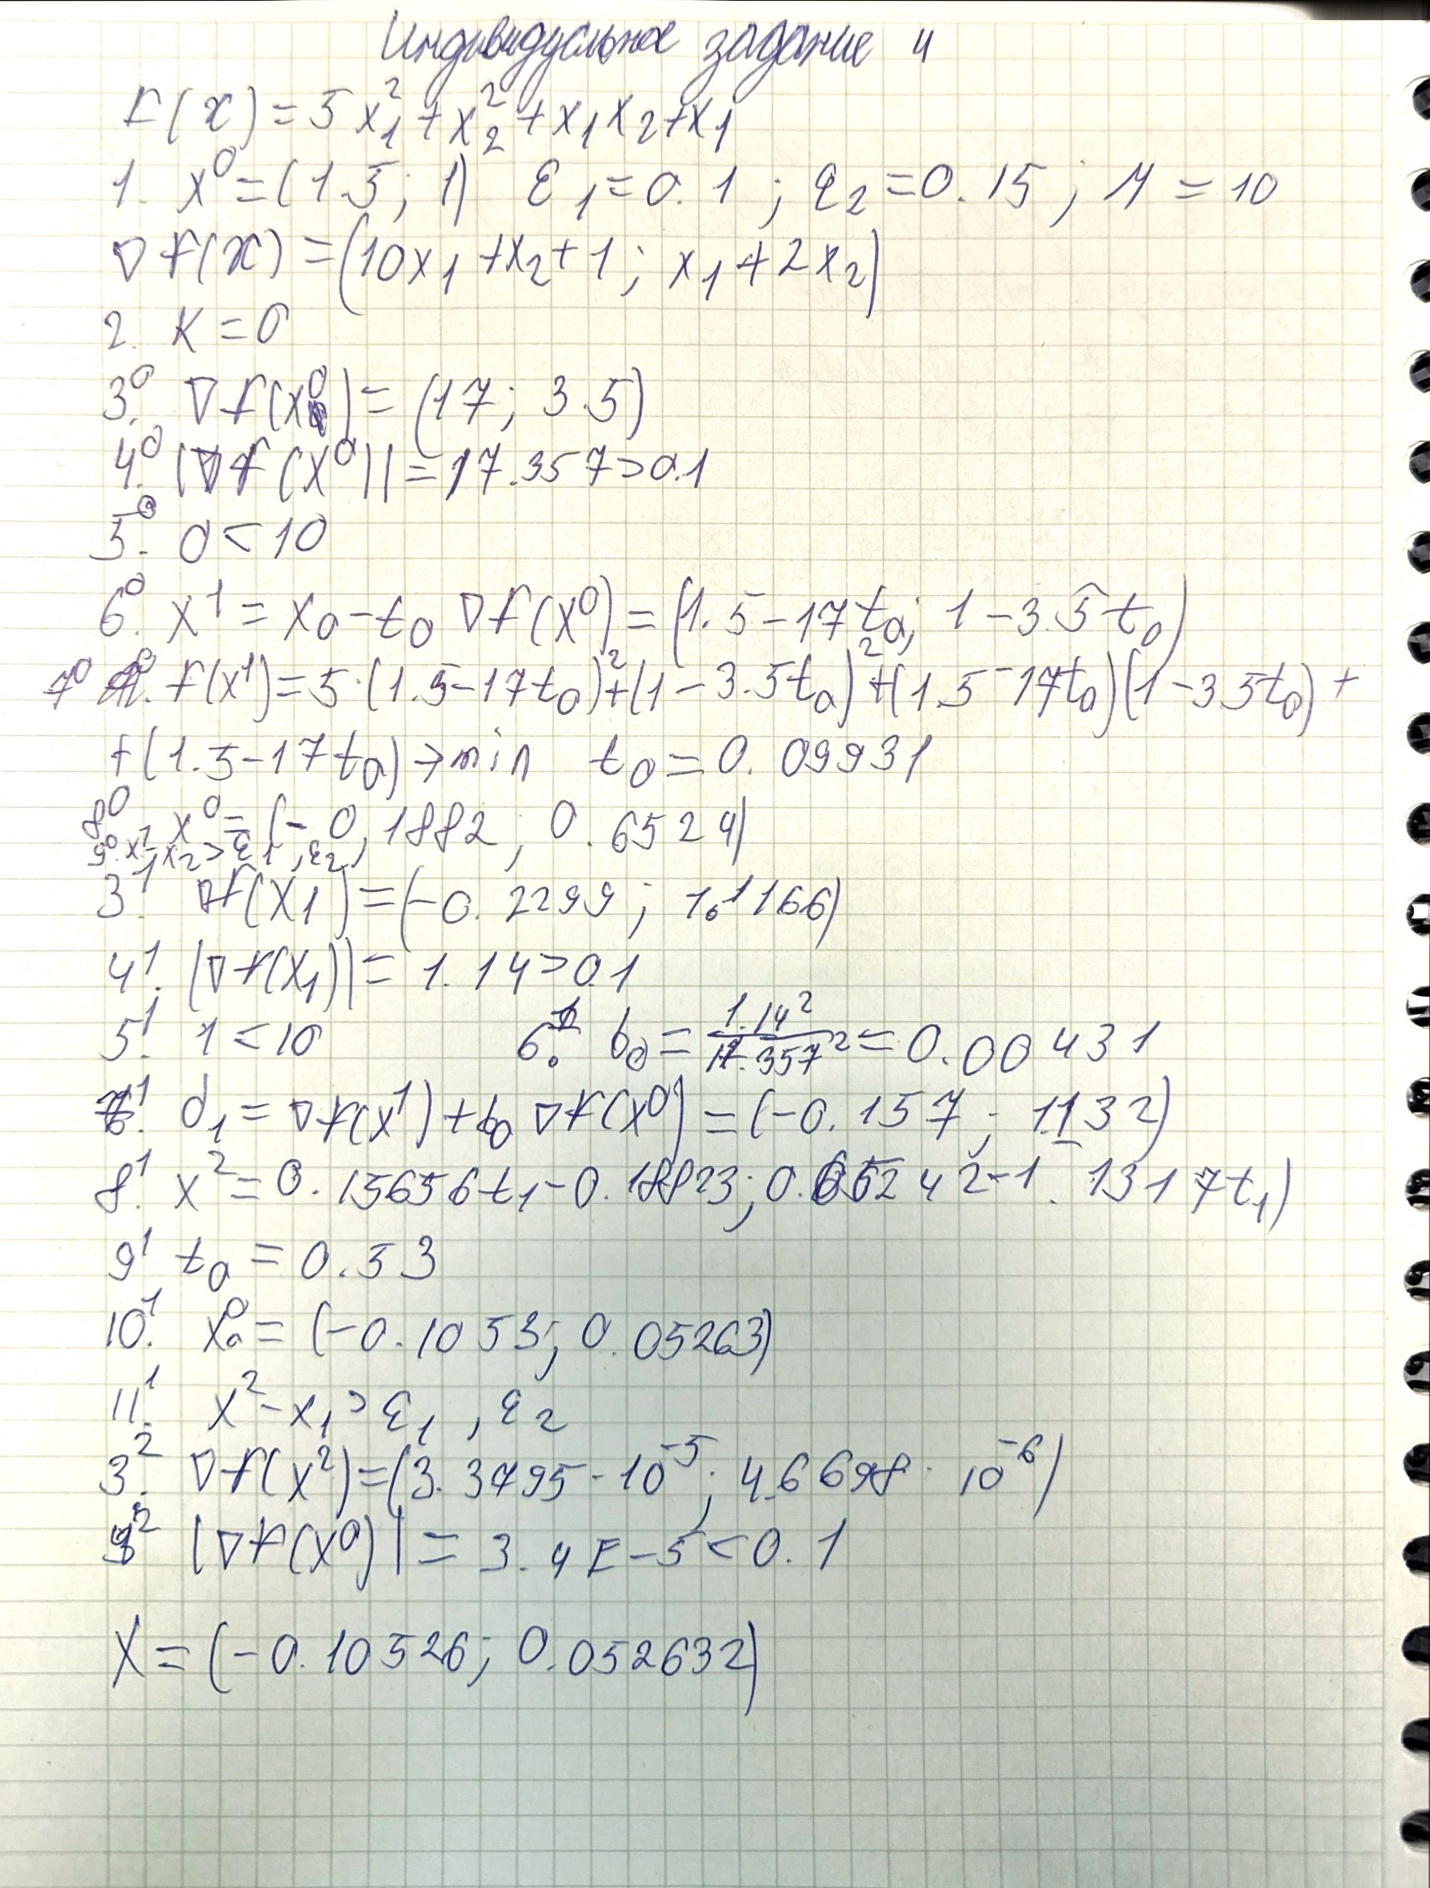 Индивидуальное задание 4
f(x) = 5x₁² + x₂² + x₁x₂ + x₁
1. x⁰ = (1.5; 1) ε₁ = 0.1; ε₂ = 0.15; M = 10
∇f(x) = (10x₁ + x₂ + 1; x₁ + 2x₂)
2. K = 0
3⁰. ∇f(x⁰) = (17; 3.5)
4⁰. |∇f(x⁰)| = 17.357 > 0.1
5⁰. 0 < 10
6⁰. x¹ = x₀ - t₀ ∇f(x⁰) = (1.5 - 17t₀; 1 - 3.5t₀)
7⁰ f(x¹) = 5·(1.5 - 17t₀)² + (1 - 3.5t₀)² + (1.5 - 17t₀)(1 - 3.5t₀) +
+ (1.5 - 17t₀) → min t₀ = 0.09931
8⁰ x⁰ = (-0,1882; 0.6524)
9⁰. x² - x₂ > ε₁, ε₂,
3¹. ∇f(x₁) = (-0.2299; 1.1166)
4¹. |∇f(x₁)| = 1.14 > 0.1
5¹. 1 < 10 6¹. b₀ = 1.14² / 17.357² = 0.00431
7¹. d₁ = ∇f(x¹) + b₀ ∇f(x⁰) = (-0.157; 1.132)
8¹. x² = 0.15656t₁ - 0.18823; 0.65242 - 1.1317t₁)
9¹ t₀ = 0.53
10¹. x₀⁰ = (-0.1053; 0.05263)
11¹. x² - x₁ > ε₁, ε₂
3². ∇f(x²) = (3.3795·10⁻⁵; 4.6698·10⁻⁶)
4² |∇f(x⁰)| = 3.4E-5 < 0.1
X = (-0.10526; 0.052632)